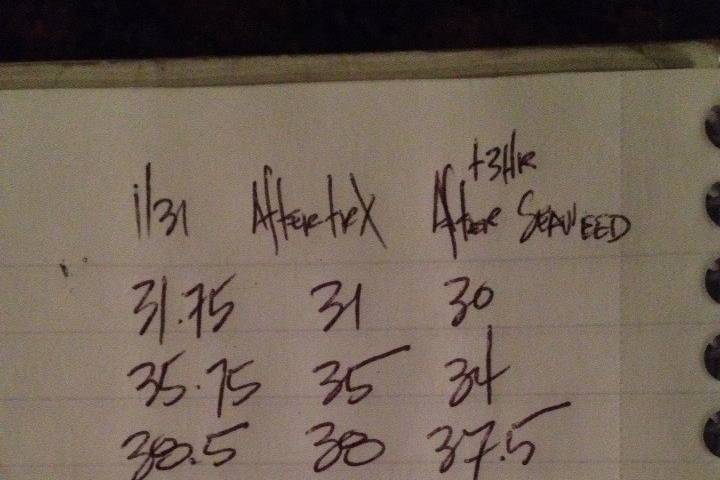 +3HR
1/31 After trX After SEAWEED
31.75 31 30
35.75 35 34
38.5 38 37.5